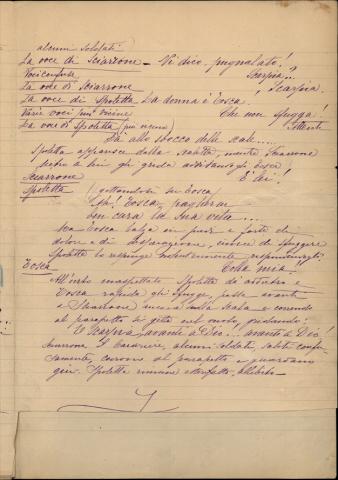 alcuni soldati
La voce di Sciarrone – Vi dico pugnalato!
Voci confuse Scarpia?..
La voce di Sciarrone Scarpia.
La voce di Spoletta La donna è Tosca!
Varie voci più vicine Che non sfugga!
La voce di Spoletta (più vicina) Attenti
Là allo sbocco delle scale...
Spoletta apparisce dalla scaletta, mentre Sciarrone
dietro a lui gli grida additandogli Tosca
Sciarrone È lei!
Spoletta (gettandosi su Tosca
Ah! Tosca, pagherai
ben cara la sua vita....
Tosca balza in piedi e
dolore e di disperazione, invece di sfuggire
Spoletta lo respinge violentemente rispondendogli:
Tosca Colla mia!
All'urto inaspettato Spoletta dà addietro e
Tosca rapida gli sfugge, passa avanti
a Sciarrone ancora sulla scala e correndo
al parapetto si getta nel vuoto gridando:
O Scarpia, avanti a Dio!.. avanti a Dio!
Sciarrone ed alcuni soldati, saliti confu-
samente, corrono al parapetto e guardano
giù. Spoletta rimane esterrefatto, allibito.